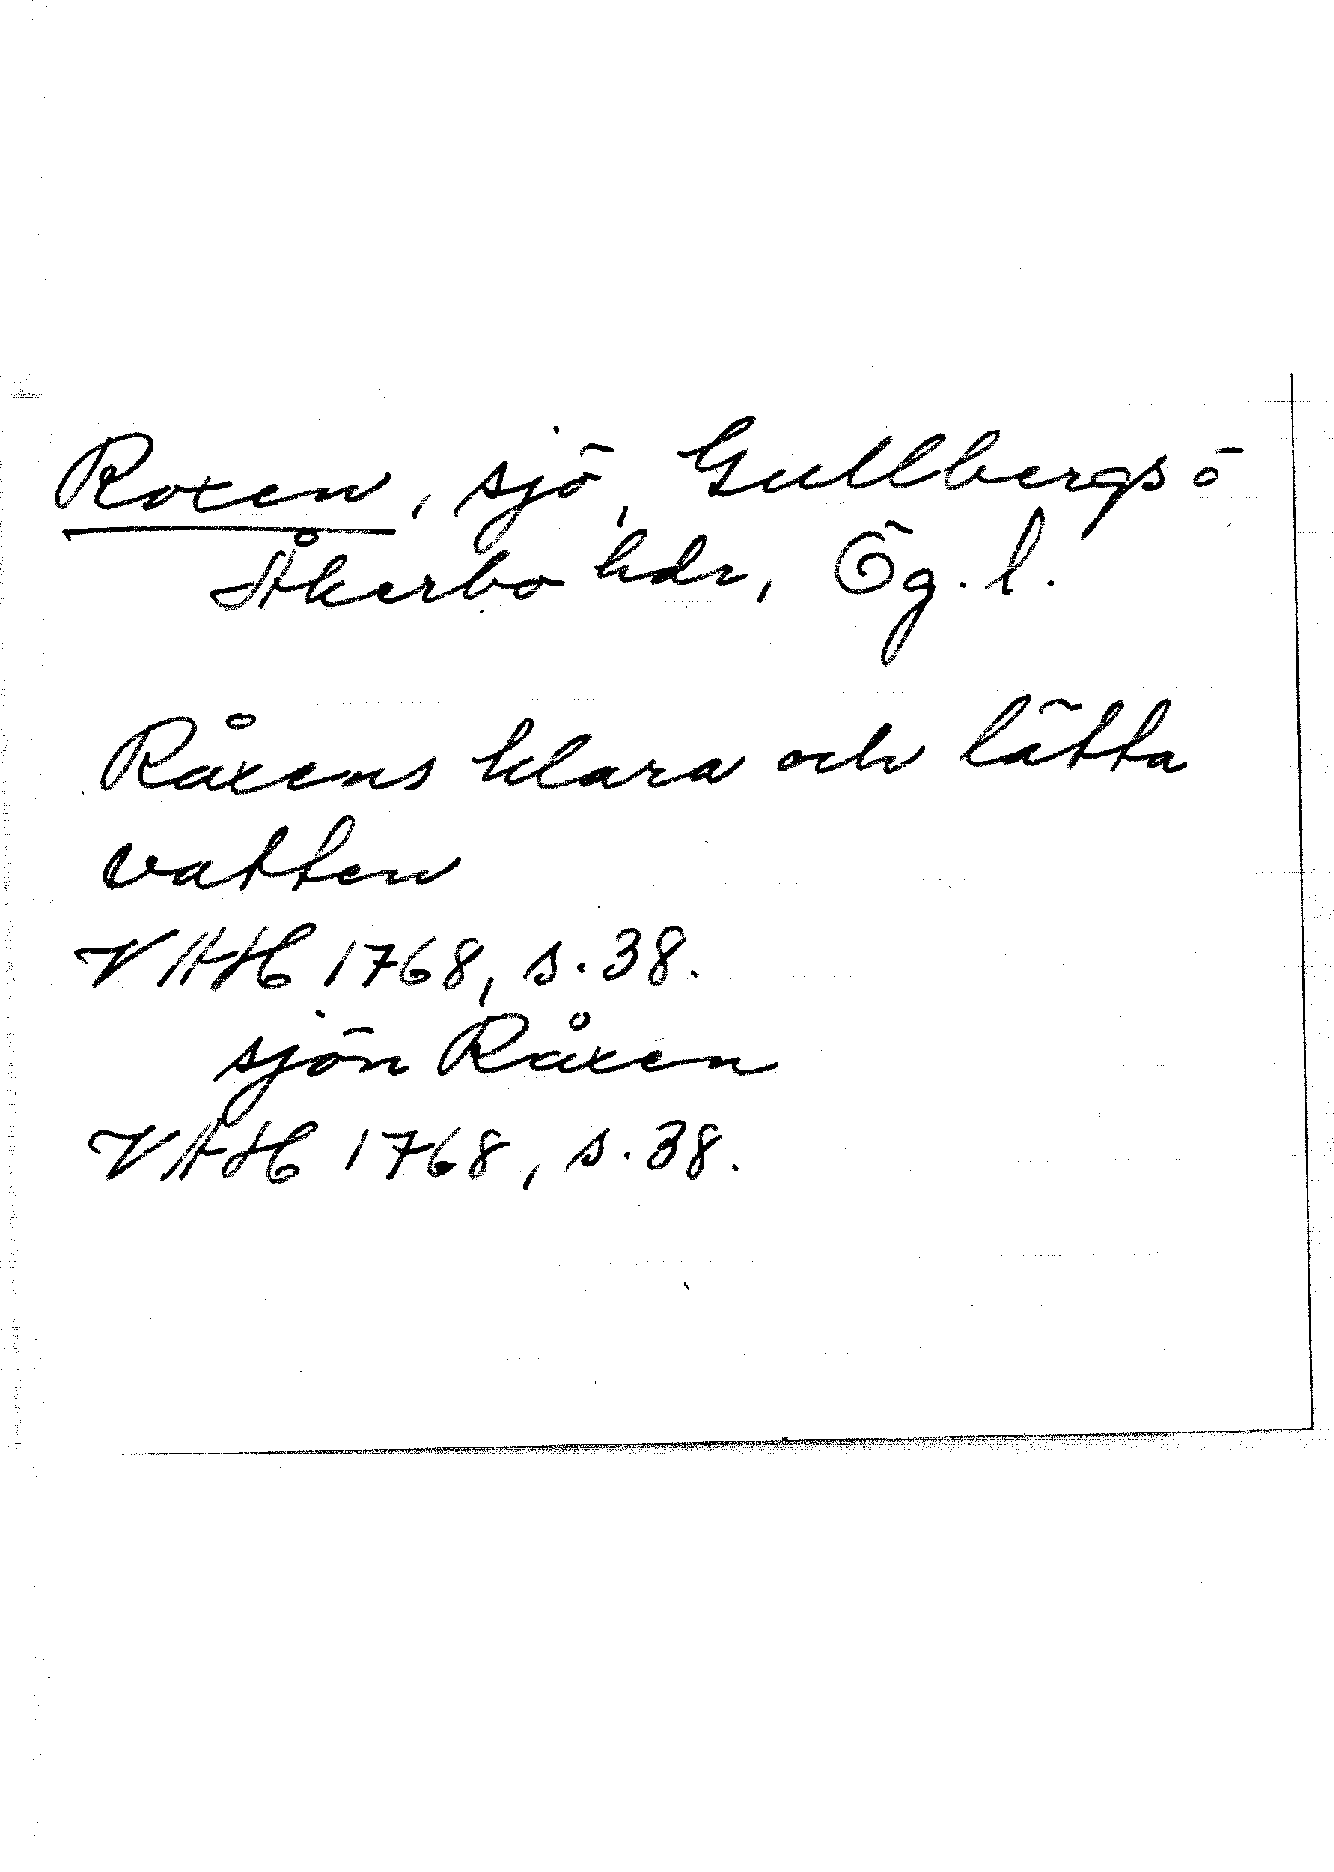 Roxen, sjö, Gullbergs ö
Åkerbo hdr, Ög. l.
Råxens klara och lätta
vatten
VAH 1768, s. 38.
sjön Råxen
VAH 1768, s. 38.